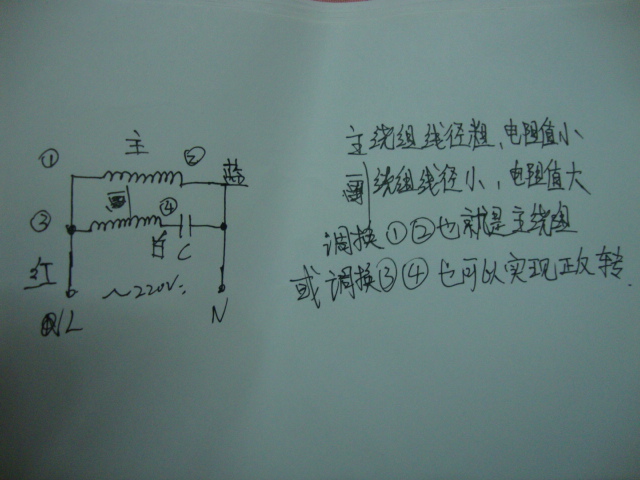 ① 主 ② 蓝
③ 副 ④
红 白 C
~220V
L N
主绕组线径粗、电阻值小
副绕组线径小、电阻值大
调换①②也就是主绕组
或调换③④也可以实现正反转.